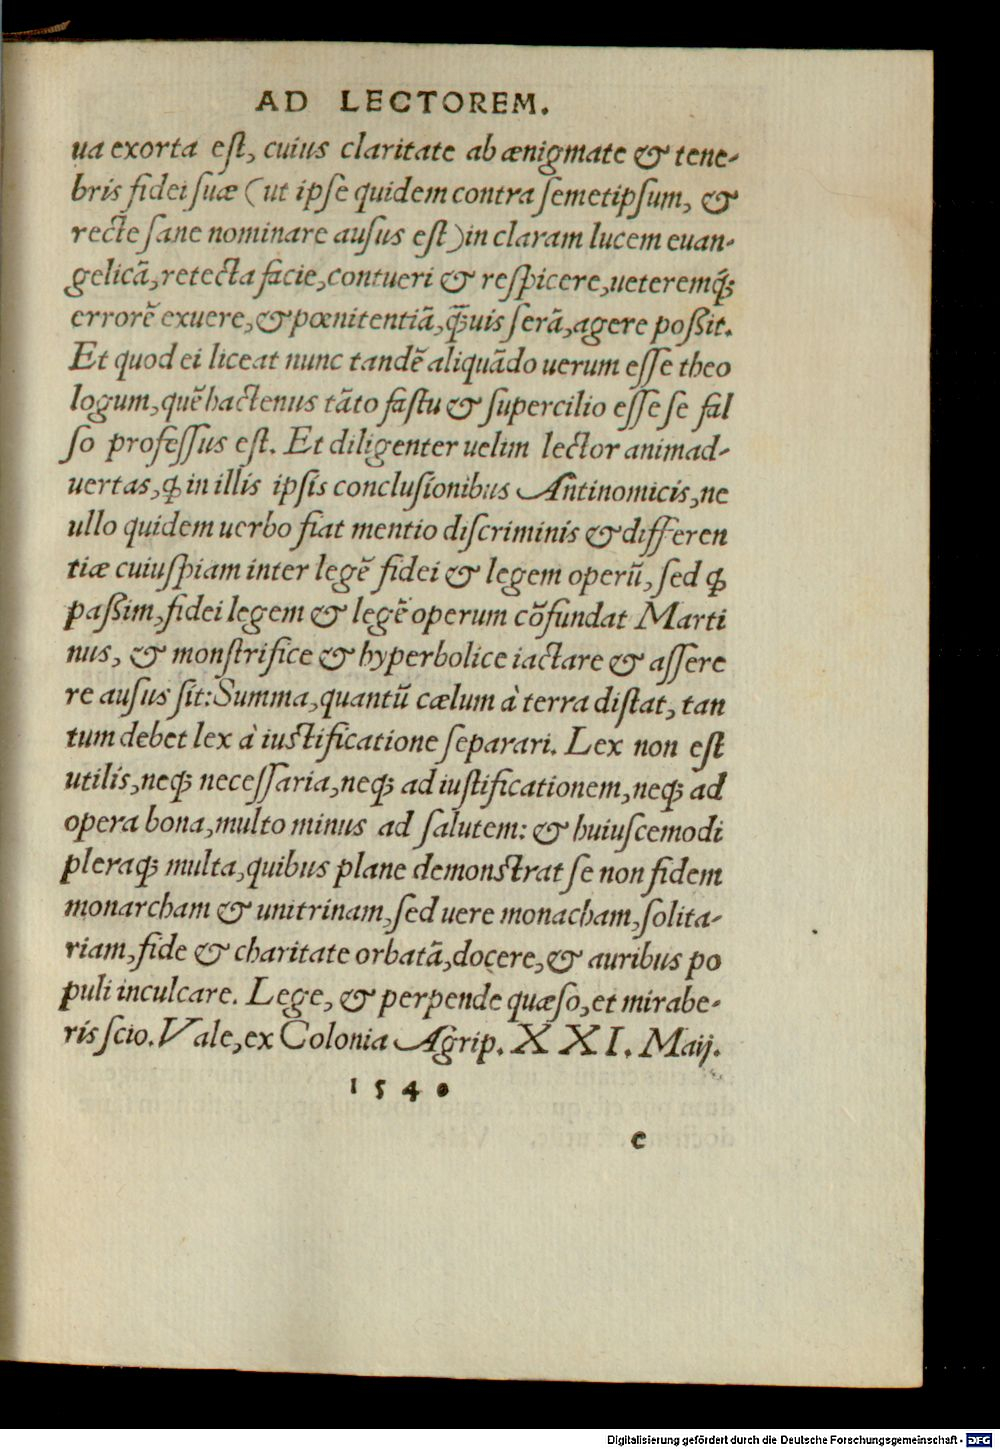 AD LECTOREM.
ua exorta eſt, cuius claritate ab ænigmate & tene-
bris fidei ſuæ (ut ipſe quidem contra ſemetipſum, &
recte ſane nominare auſus eſt) in claram lucem euan-
gelicã, retecta facie, contueri & reſpicere, ueteremq́;
errorẽ exuere, & pœnitentiã, q̃uis ſerã, agere poßit.
Et quod ei liceat nunc tandẽ aliquãdo uerum eſſe theo
logum, quẽ hactenus tãto faſtu & ſupercilio eſſe ſe fal
ſo profeſſus eſt. Et diligenter uelim lector animad-
uertas, ꝙ in illis ipſis concluſionibus Antinomicis, ne
ullo quidem uerbo fiat mentio diſcriminis & differen
tiæ cuiuſpiam inter legẽ fidei & legem operũ, ſed ꝙ
paßim, fidei legem & legẽ operum cõfundat Marti
nus, & monſtrifice & hyperbolice iactare & aſſere
re auſus ſit: Summa, quantũ cælum à terra diſtat, tan
tum debet lex à iuſtificatione ſeparari. Lex non eſt
utilis, neq; neceſſaria, neq; ad iuſtificationem, neq; ad
opera bona, multo minus ad ſalutem: & huiuſcemodi
pleraq; multa, quibus plane demonſtrat ſe non fidem
monarcham & unitrinam, ſed uere monacham, ſolita-
riam, fide & charitate orbatã, docere, & auribus po
puli inculcare. Lege, & perpende quæſo, et mirabe-
ris ſcio. Vale, ex Colonia Agrip. XXI. Maij.
1540
c
Digitalisierung gefördert durch die Deutsche Forschungsgemeinschaft - DFG